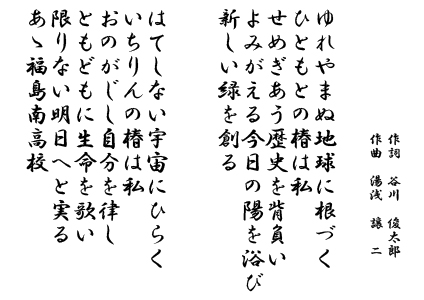 作詞 谷川 俊太郎
作曲 湯浅 譲二
ゆれやまぬ地球に根づく
ひともとの椿は私
せめぎあう歴史を背負い
よみがえる今日の陽を浴び
新しい緑を創る
はてしない宇宙にひらく
いちりんの椿は私
おのがじし自分を律し
ともどもに生命を歌い
限りない明日へと実る
あゝ福島南高校